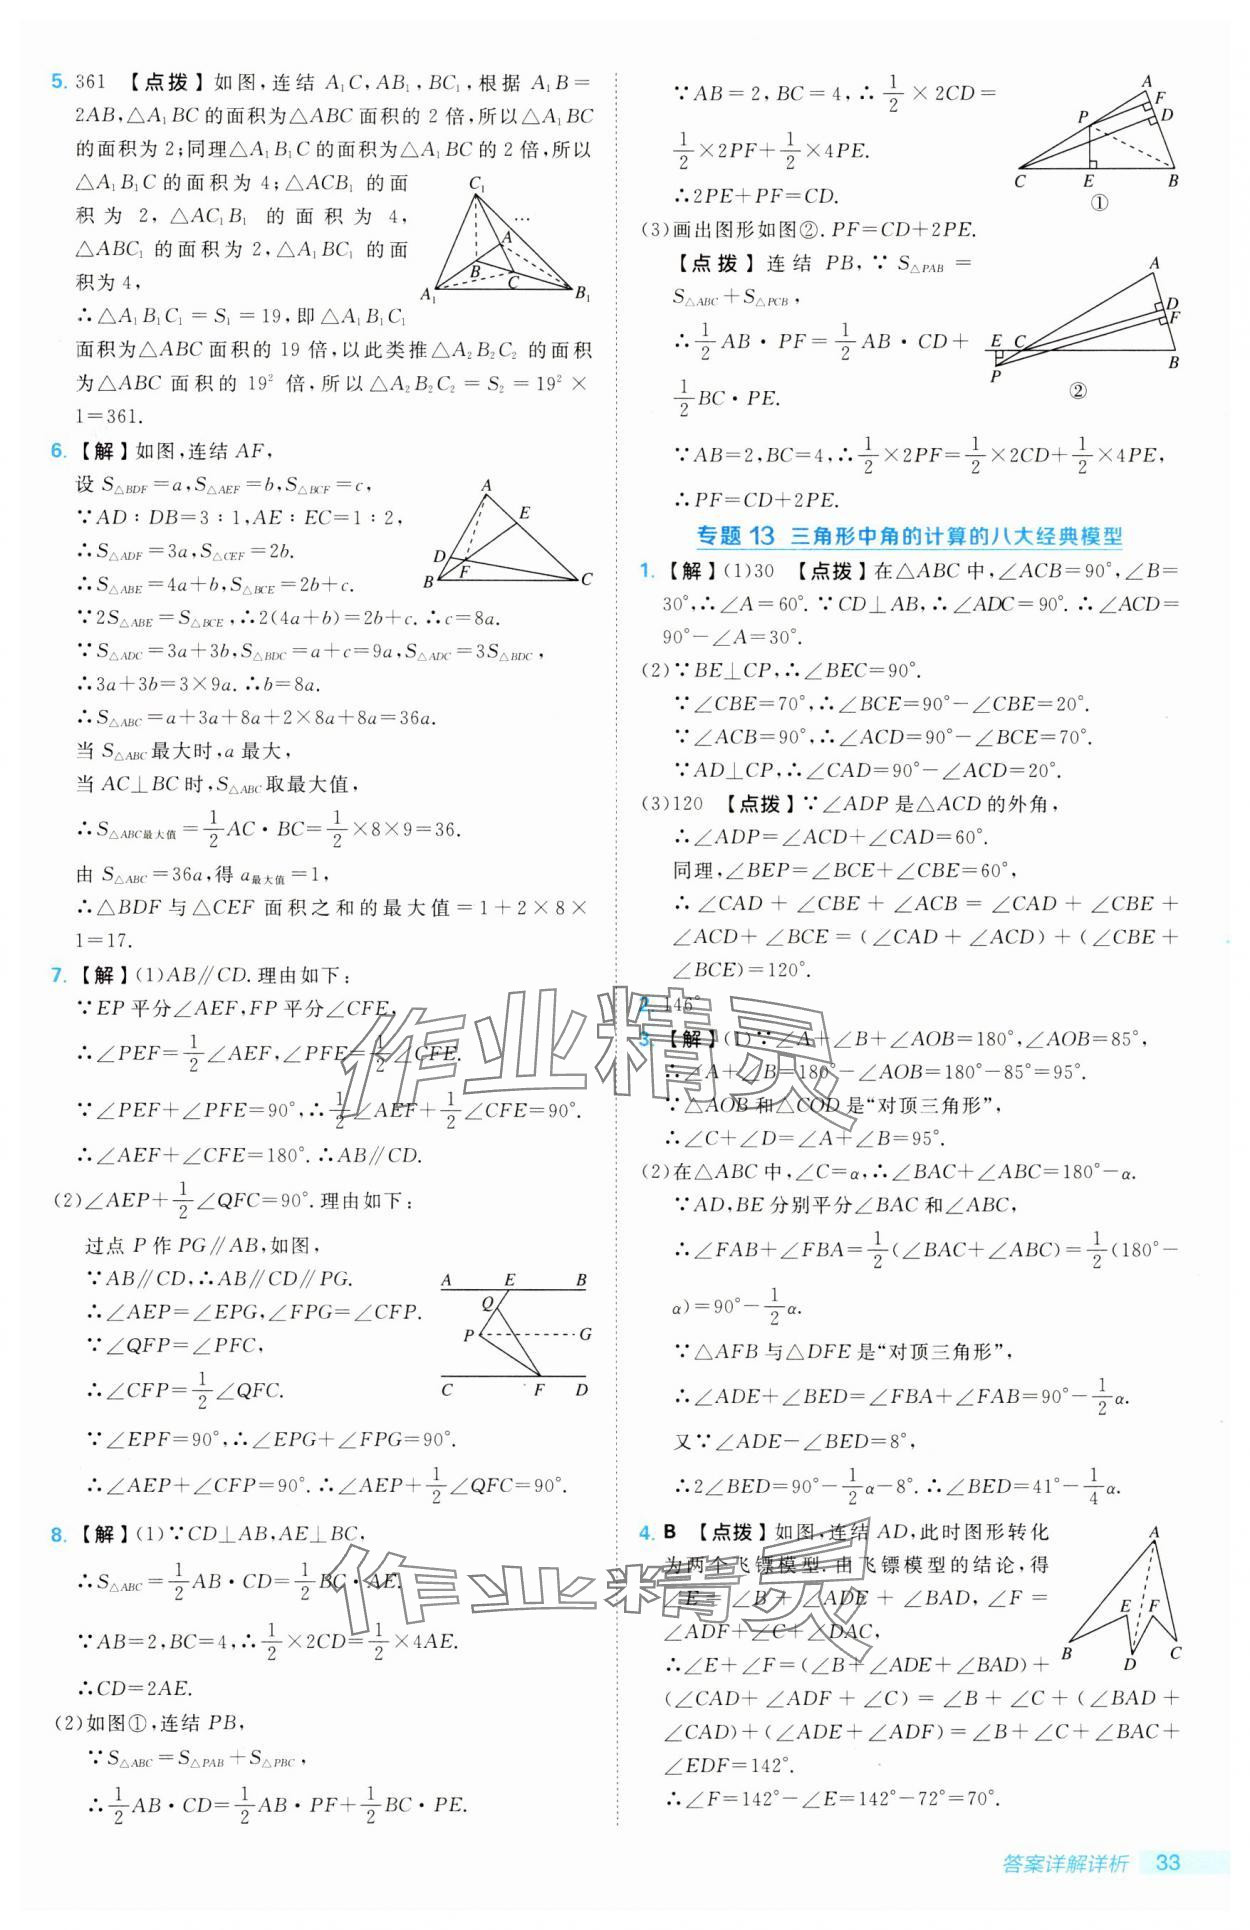 5. 361 【点拨】如图,连结 A₁C,AB₁,BC₁,根据 A₁B=
2AB,△A₁BC的面积为△ABC面积的 2 倍,所以△A₁BC
的面积为2;同理△A₁B₁C的面积为△A₁BC的2倍,所以
△A₁B₁C 的面积为 4;△ACB₁ 的面
积为 2,△AC₁B₁ 的面积为 4,
△ABC₁ 的面积为 2,△A₁BC₁ 的面
积为 4,
C₁
…
A
B
C
A₁
B₁
∴△A₁B₁C₁=S₁=19,即△A₁B₁C₁
面积为△ABC面积的 19 倍,以此类推△A₂B₂C₂ 的面积
为△ABC 面积的 19² 倍,所以△A₂B₂C₂=S₂=19²×
1=361.
6. 【解】如图,连结 AF,
设 S△BDF=a,S△AEF=b,S△BCF=c,
∵AD∶DB=3∶1,AE∶EC=1∶2,
∴S△ADF=3a,S△CEF=2b.
∴S△ABE=4a+b,S△BCE=2b+c.
A
E
D
F
B
C
∵2S△ABE=S△BCE,∴2(4a+b)=2b+c.∴c=8a.
∵S△ADC=3a+3b,S△BDC=a+c=9a,S△ADC=3S△BDC,
∴3a+3b=3×9a.∴b=8a.
∴S△ABC=a+3a+8a+2×8a+8a=36a.
当 S△ABC最大时,a 最大,
当 AC⊥BC 时,S△ABC取最大值,
∴S△ABC最大值=1/2AC·BC=1/2×8×9=36.
由 S△ABC=36a,得 a最大值=1,
∴△BDF 与△CEF 面积之和的最大值=1+2×8×
1=17.
7. 【解】(1)AB∥CD.理由如下:
∵EP平分∠AEF,FP平分∠CFE,
∴∠PEF=1/2∠AEF,∠PFE=1/2∠CFE.
∵∠PEF+∠PFE=90°,∴1/2∠AEF+1/2∠CFE=90°.
∴∠AEF+∠CFE=180°.∴AB∥CD.
(2)∠AEP+1/2∠QFC=90°.理由如下:
过点 P 作 PG∥AB,如图,
∵AB∥CD,∴AB∥CD∥PG.
∴∠AEP=∠EPG,∠FPG=∠CFP.
∵∠QFP=∠PFC,
∴∠CFP=1/2∠QFC.
A E B
Q
P G
C F D
∵∠EPF=90°,∴∠EPG+∠FPG=90°.
∴∠AEP+∠CFP=90°.∴∠AEP+1/2∠QFC=90°.
8. 【解】(1)∵CD⊥AB,AE⊥BC,
∴S△ABC=1/2AB·CD=1/2BC·AE.
∵AB=2,BC=4,∴1/2×2CD=1/2×4AE.
∴CD=2AE.
(2)如图①,连结 PB,
∵S△ABC=S△PAB+S△PBC,
∴1/2AB·CD=1/2AB·PF+1/2BC·PE.
∵AB=2,BC=4,∴1/2×2CD=
1/2×2PF+1/2×4PE.
∴2PE+PF=CD.
A
F
D
P
C E B
①
(3)画出图形如图②.PF=CD+2PE.
【点拨】连结 PB,∵S△PAB=
S△ABC+S△PCB,
∴1/2AB·PF=1/2AB·CD+
1/2BC·PE.
A
D
F
E C
B
P
②
∵AB=2,BC=4,∴1/2×2PF=1/2×2CD+1/2×4PE,
∴PF=CD+2PE.
专题 13 三角形中角的计算的八大经典模型
1. 【解】(1)30 【点拨】在△ABC中,∠ACB=90°,∠B=
30°,∴∠A=60°.∵CD⊥AB,∴∠ADC=90°.∴∠ACD=
90°-∠A=30°.
(2)∵BE⊥CP,∴∠BEC=90°.
∵∠CBE=70°,∴∠BCE=90°-∠CBE=20°.
∵∠ACB=90°,∴∠ACD=90°-∠BCE=70°.
∵AD⊥CP,∴∠CAD=90°-∠ACD=20°.
(3)120 【点拨】∵∠ADP是△ACD的外角,
∴∠ADP=∠ACD+∠CAD=60°.
同理,∠BEP=∠BCE+∠CBE=60°,
∴∠CAD+∠CBE+∠ACB=∠CAD+∠CBE+
∠ACD+∠BCE=(∠CAD+∠ACD)+(∠CBE+
∠BCE)=120°.
2. 146°
3. 【解】(1)∵∠A+∠B+∠AOB=180°,∠AOB=85°,
∴∠A+∠B=180°-∠AOB=180°-85°=95°.
∵△AOB和△COD是“对顶三角形”,
∴∠C+∠D=∠A+∠B=95°.
(2)在△ABC中,∠C=α,∴∠BAC+∠ABC=180°-α.
∵AD,BE分别平分∠BAC和∠ABC,
∴∠FAB+∠FBA=1/2(∠BAC+∠ABC)=1/2(180°-
α)=90°-1/2α.
∵△AFB与△DFE是“对顶三角形”,
∴∠ADE+∠BED=∠FBA+∠FAB=90°-1/2α.
又∵∠ADE-∠BED=8°,
∴2∠BED=90°-1/2α-8°.∴∠BED=41°-1/4α.
4. B 【点拨】如图,连结 AD,此时图形转化
为两个飞镖模型.由飞镖模型的结论,得
∠E=∠B+∠ADE+∠BAD,∠F=
∠ADF+∠C+∠DAC,
A
E F
B D C
∴∠E+∠F=(∠B+∠ADE+∠BAD)+
(∠CAD+∠ADF+∠C)=∠B+∠C+(∠BAD+
∠CAD)+(∠ADE+∠ADF)=∠B+∠C+∠BAC+
∠EDF=142°.
∴∠F=142°-∠E=142°-72°=70°.
作业精灵
作业精灵
答案详解详析 33